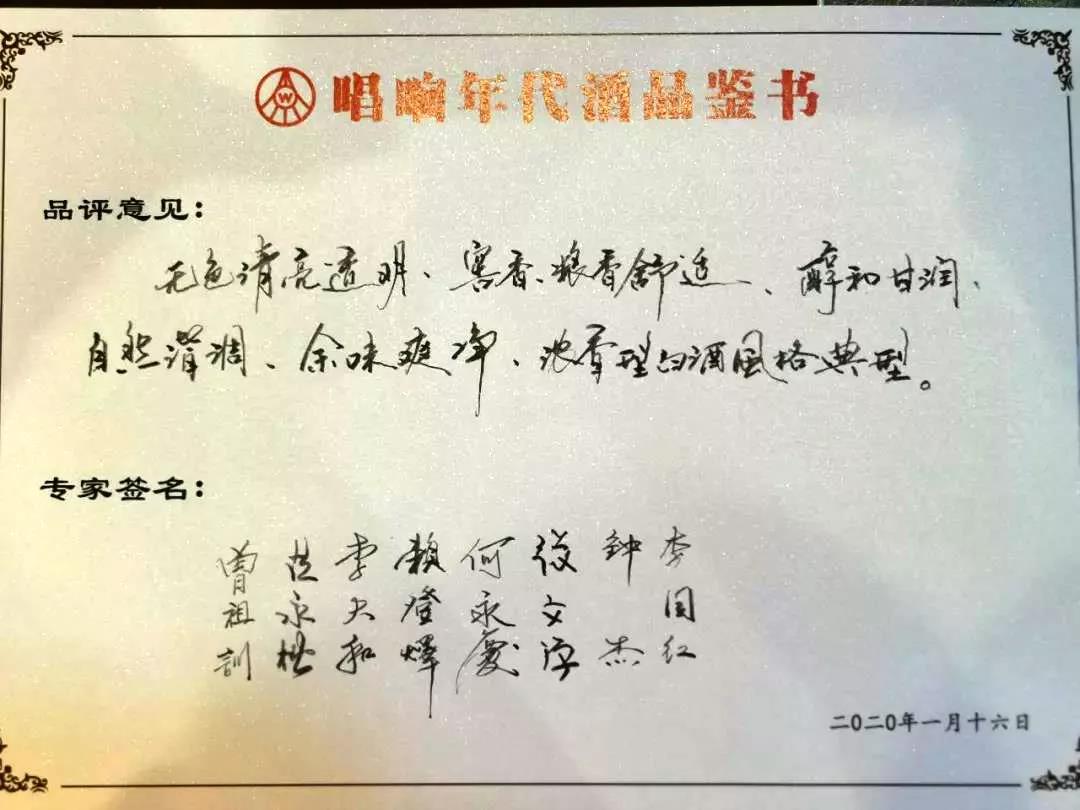 唱响年代酒品鉴书
品评意见：
无色清亮透明、窖香、粮香舒适、醇和甘润、
自然谐调、余味爽净、浓香型白酒风格典型。
专家签名：
曾祖訓
范永
李大和
赖登燡
何永
文
钟杰
李国红
二〇二〇年一月十六日